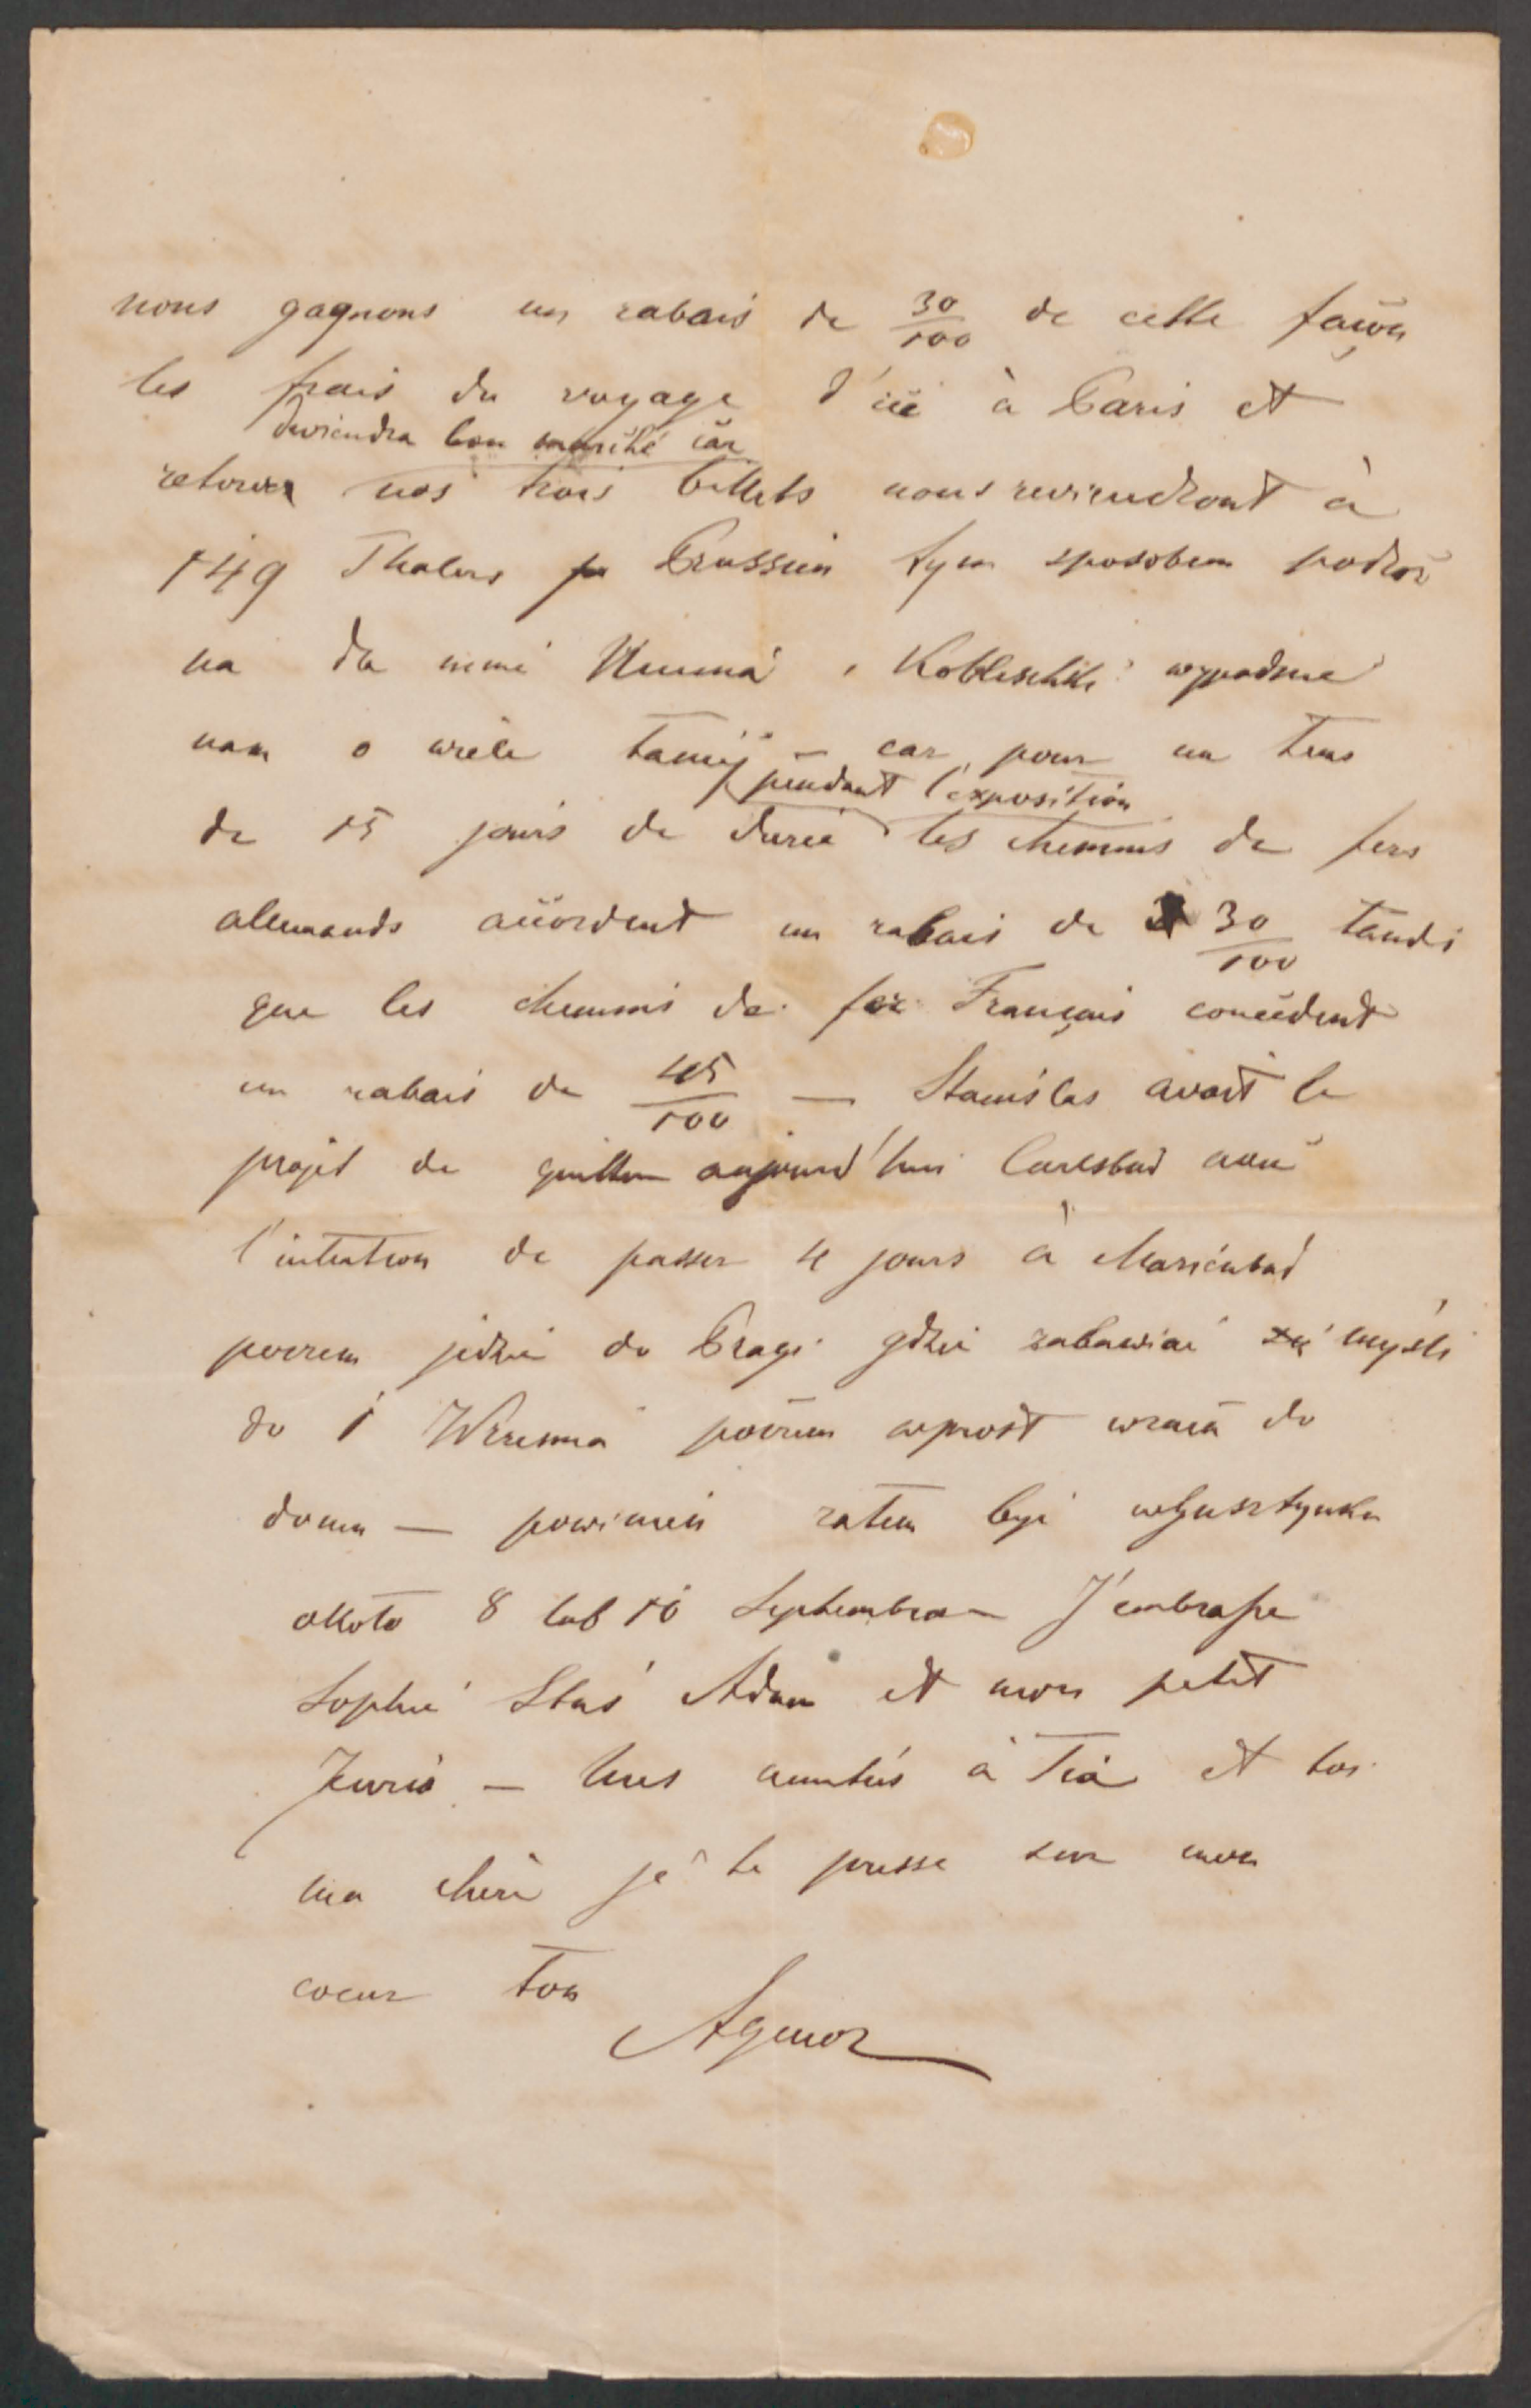 nous gagnons un rabais de 30/100 de cette façon
les frais du voyage d'ici à Paris et
deviendra bon marché car
retour nos trois billets nous reviendront à
149 Thalers Prussien tym sposobem podróż
na dla mnie Numa i wypadnie
nam o wiele taniéj – car pour un tems
pendant l'exposition
de 15 jours de durée les chemins de fers
allemands accordent un rabais de 30/100 tandis
que les chemins de fer Français concèdent
un rabais de 45/100 — Stanislas avait le
projet de quitter aujourd'hui Carlsbad avec
l'intention de passer 4 jours à Marienbad
poczem jedzie do Pragi gdzie zabawiać myśli
do 1 Września poczem wprost wraca do
domu — powinien zatem być w Gusztynku
około 8 lub 10 Septembra – J'embrasse
Sophie Staś Adam et mon petit
Jurio – mes amitiés à Tia et toi
ma chère je te presse sur mon
coeur Ton
Agenor